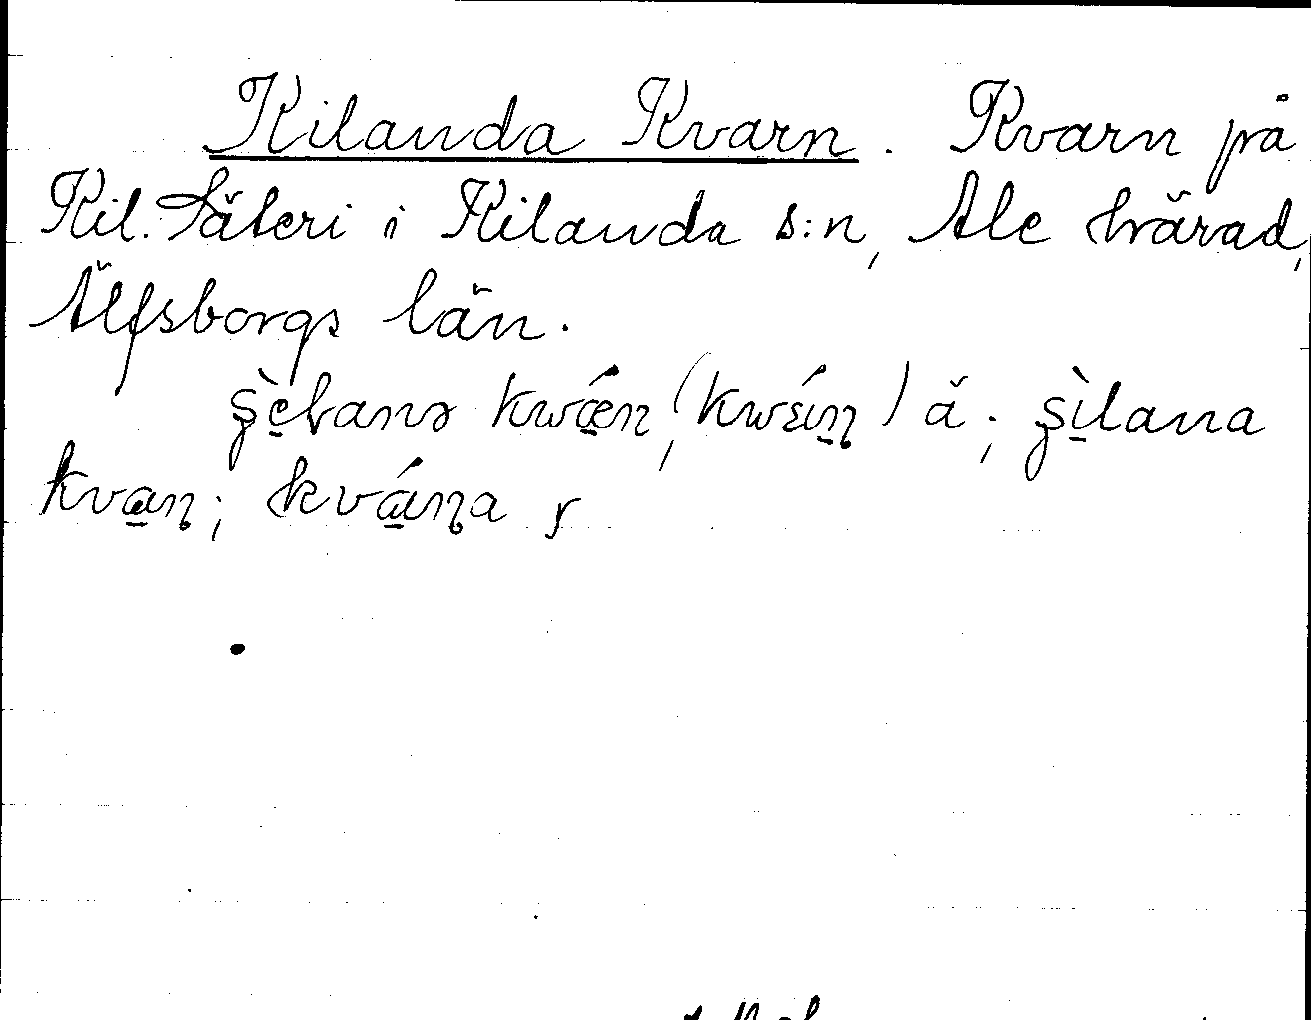 Kilanda Kvarn. Kvarn på
Kil. Säteri i Kilanda s:n, Ale härad,
Älfsborgs län.
kwǽn, (kwɛ́ɪn̠) ä; ʂìlana
kvan̠; kván̠a r